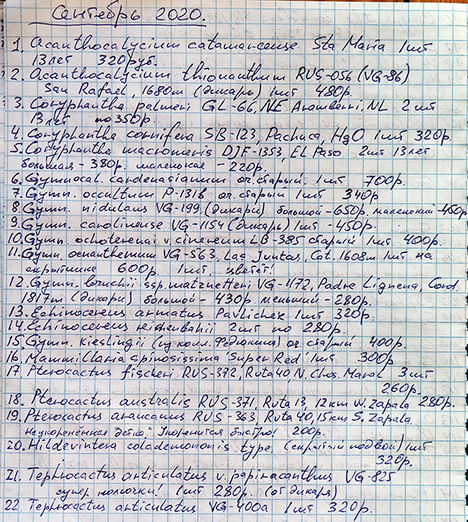 Сентябрь 2020.
1. Acanthocalycium catamarcense Sta Maria 1шт
13 лет 320руб.
2. Acanthocalycium thionanthum RUS-056 (VG-86)
San Rafael, 1680m (дикари) 1шт 480р.
3. Coryphantha palmeri GL-66, NE Aramberri, NL 2шт
13лет по 350р.
4. Coryphantha cornifera SB-123, Pachuca, H2O 1шт 320р
5. Coryphantha macromeris DJF-1353, El Paso 2шт 13лет
большая - 380р. маленькая - 220р.
6. Gymnocal. cardenasianum ог. старый. 1шт 700р.
7. Gymn. occultum P-131b ог. старый 1шт 340р
8. Gymn. nidulans VG-199 (дикари) большой - 650р, маленький - 450р
9. Gymn. carolinense VG-1154 (дикарь) 1шт - 450р.
10. Gymn. ochoterenai v. cinereum LB-385 старый 1шт 400р.
11. Gymn. oenanthemum VG-563, Las Juntas, Cat. 1608m 1шт на
600р. 1шт, цветёт!
12. Gymn. bruchii ssp. matznetteri VG-1172, Padre Liqnena, Cord.
1817m (дикари) большой - 430р. меньший - 280р.
13. Echinocereus armatus Pavlichex 1шт 320р.
14. Echinocereus reichenbahii 2шт по 280р.
15. Gymn. kieslingii (из колл. Федюкина) ог. старый 400р.
16. Mammillaria spinosissima "Super Red" 1шт 300р
17 Pterocactus fischeri RUS-372, Ruta 40, N. Chos. Maral 3шт
260р.
18. Pterocactus australis RUS-371, Ruta 13, 12km W. Zapala 280р.
19. Pterocactus araucanus RUS-363, Ruta 40, 15km S. Zapala.
Неукоренённая "детка" Укоренится быстро! 200р.
20. Hildewintera colademononis type. (скрытый подвой) 1шт
320р.
21. Tephrocactus articulatus v. papiracanthus VG-825
супер колючки! 1шт 280р. (от дикаря)
22 Tephrocactus articulatus VG-400a 1шт 320р.